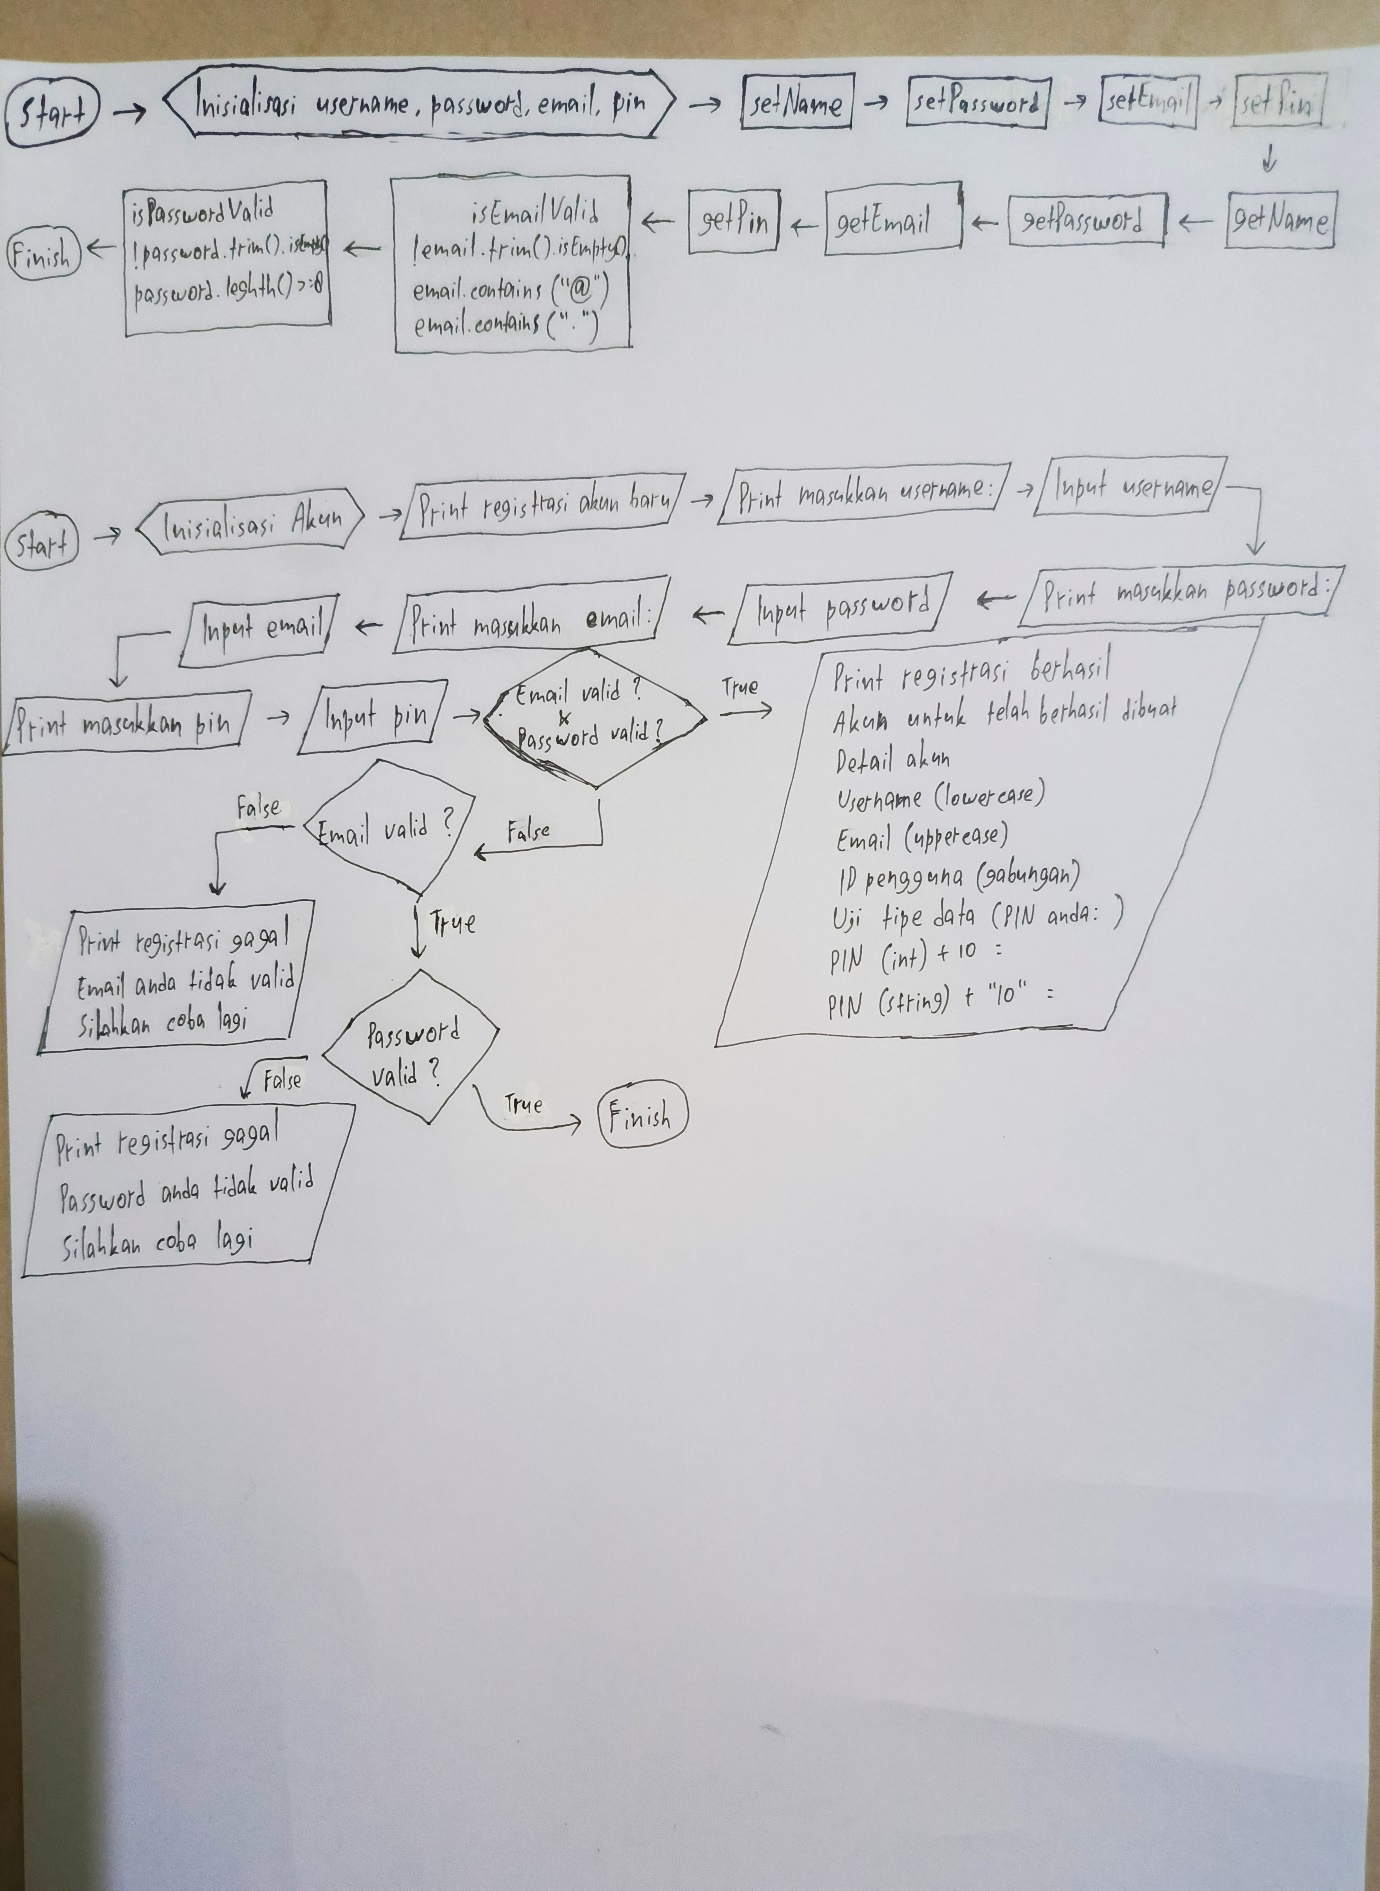 Start
Inisialisasi username, password, email, pin
setName
setPassword
setEmail
setPin
getName
getPassword
getEmail
getPin
isEmailValid
!email.trim().isEmpty()
email.contains("@")
email.contains(".")
isPasswordValid
!password.trim().isEmpty()
password.leghth() >=8
Finish
Start
Inisialisasi Akun
Print registrasi akun baru
Print masukkan username:
Input username
Print masukkan password:
Input password
Print masukkan email:
Input email
Print masukkan pin
Input pin
Email valid?
&
Password valid?
True
Print registrasi berhasil
Akun untuk telah berhasil dibuat
Detail akun
Username (lowercase)
Email (uppercase)
ID pengguna (gabungan)
Uji tipe data (PIN anda: )
PIN (int) + 10 =
PIN (string) + "10" =
False
Email valid?
False
Print registrasi gagal
Email anda tidak valid
Silahkan coba lagi
True
Password
valid?
False
Print registrasi gagal
Password anda tidak valid
Silahkan coba lagi
True
Finish